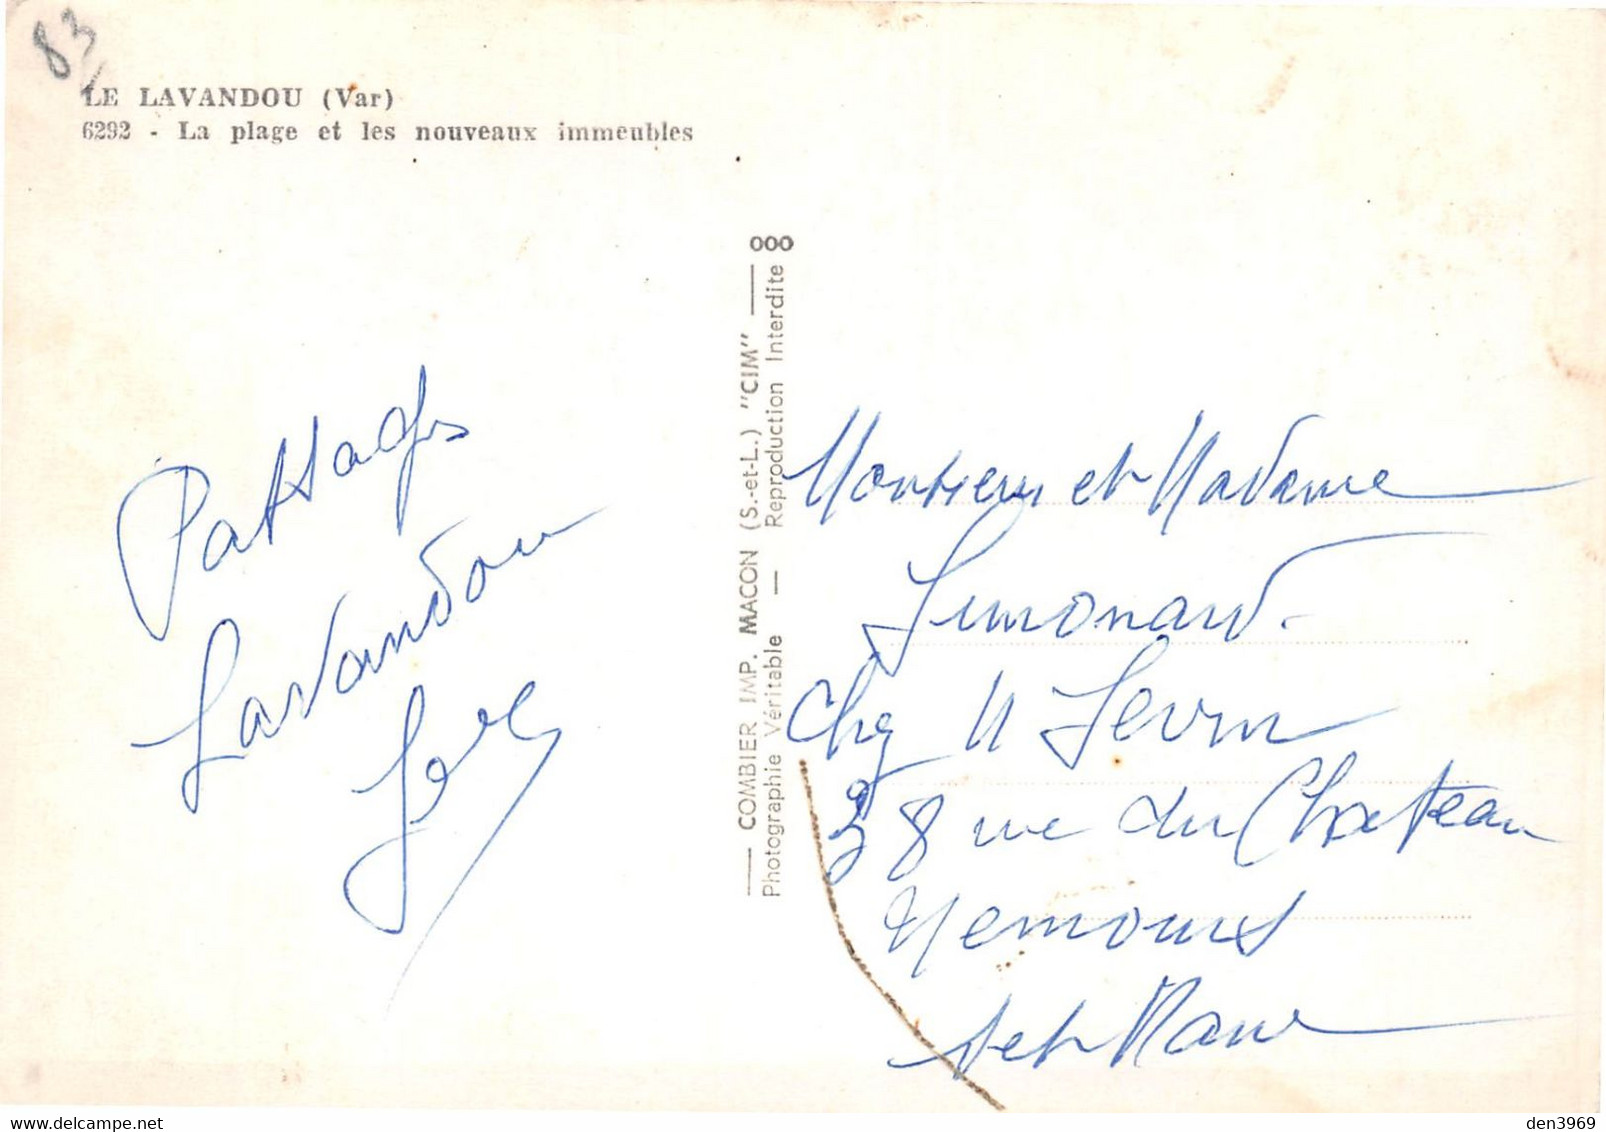 83
LE LAVANDOU (Var)
6292 - La plage et les nouveaux immeubles
000
COMBIER IMP. MACON (S.-et-L.) "CIM"
Photographie Véritable — Reproduction Interdite
Lavandou
Monsieur et Madame
Simonard.
Chez M
38 rue du Chateau
Nemours
S et Marne
delcampe.net
den3969